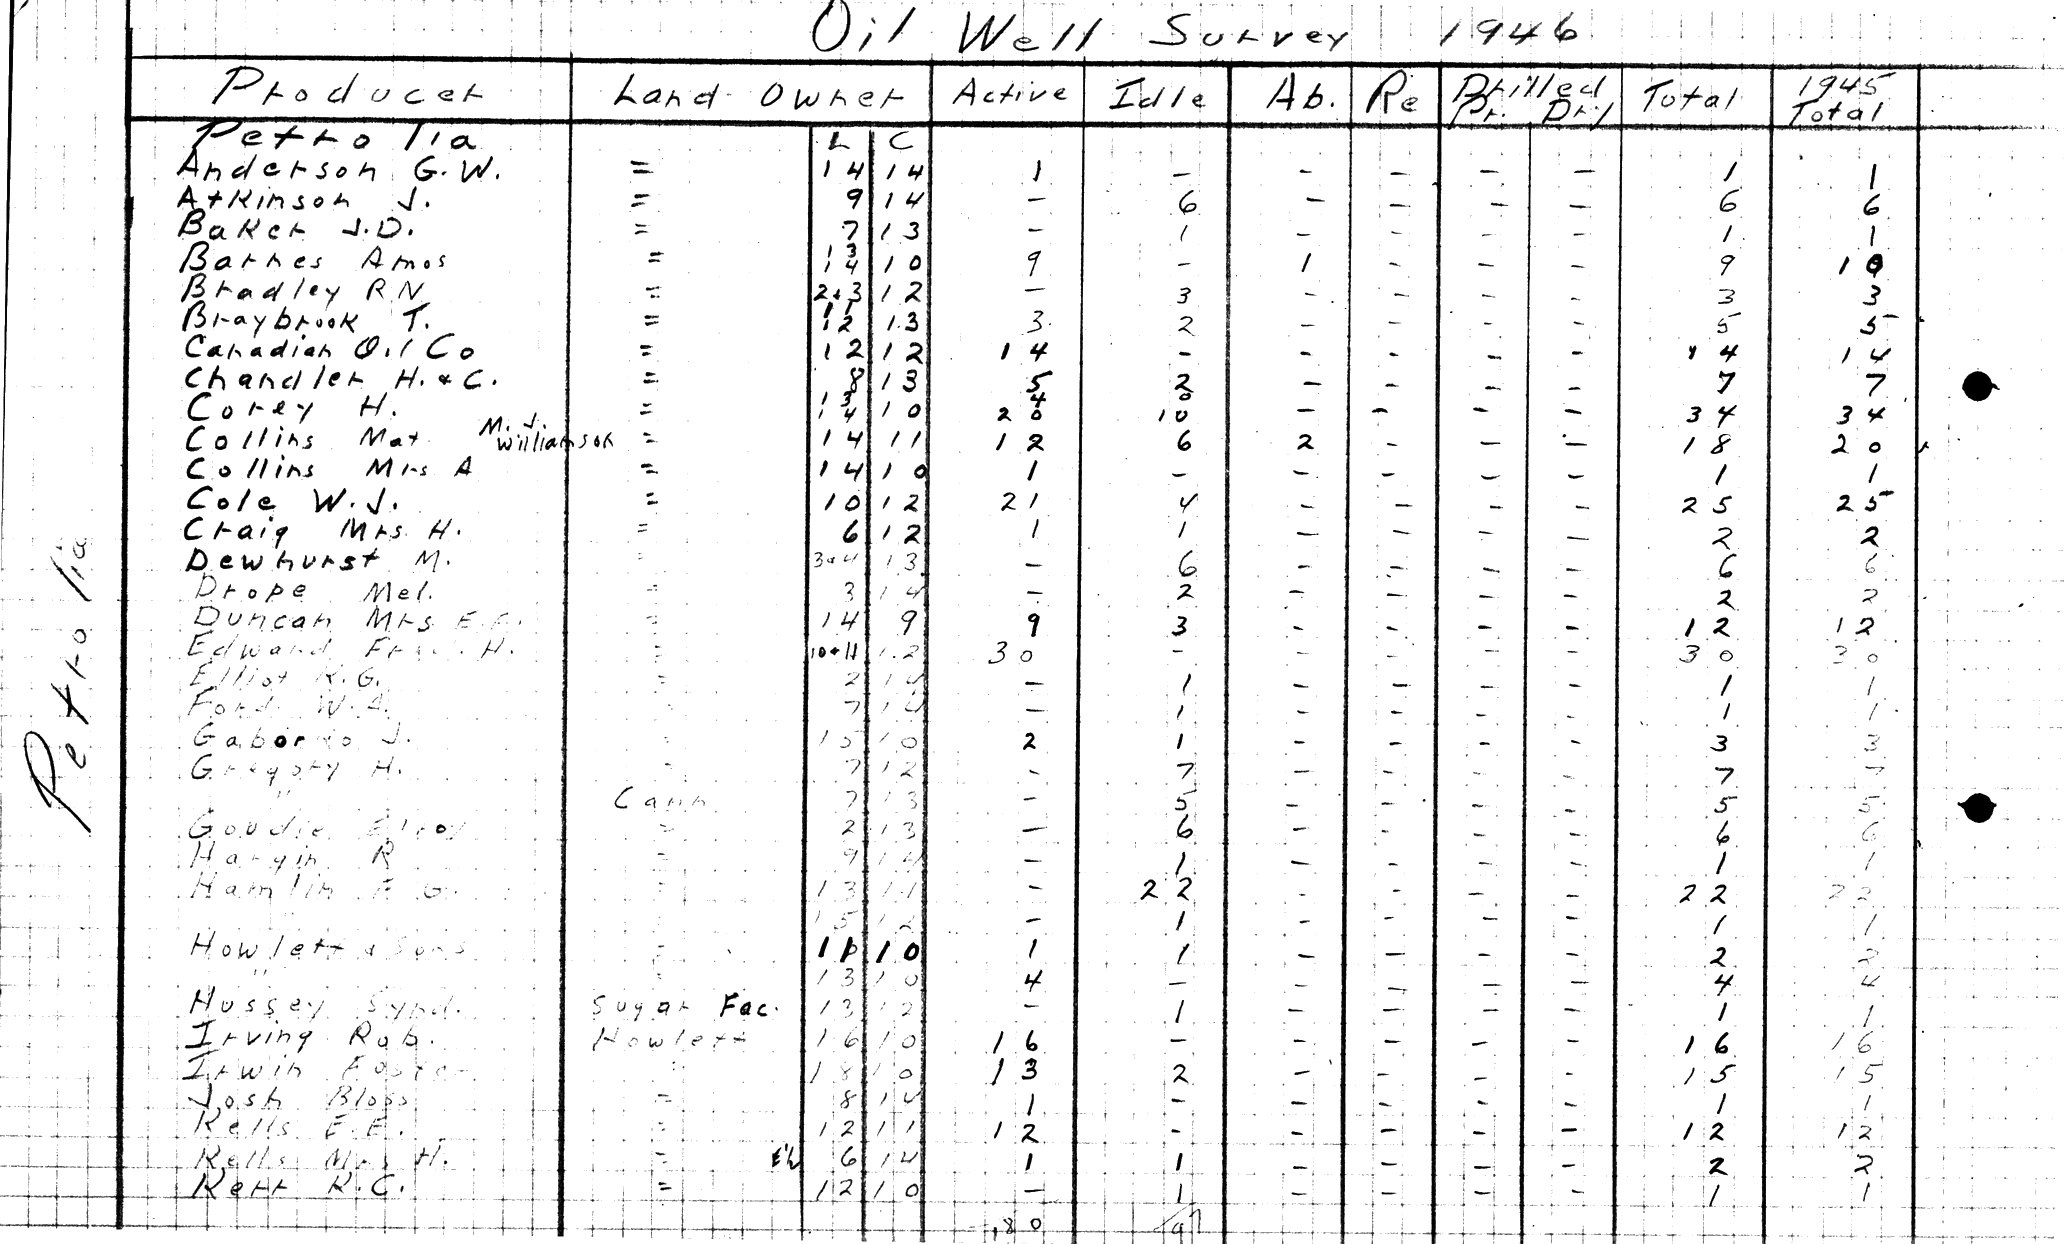 Oil Well Survey 1946
Producer Land Owner Active Idle Ab. Re Drilled Pr. Dry Total 1945 Total
Petrolia L C
Anderson G.W. = 14 14 1 - - - - - 1 1
Atkinson J. = 9 14 - 6 - - - - 6 6
Baker J.D. = 7 13 - 1 - - - - 1 1
Barnes Amos = 13 14 10 9 - 1 - - - 9 10
Bradley R.N = 2+3 12 - 3 - - - - 3 3
Braybrook T. = 11 12 13 3 2 - - - - 5 5
Canadian Oil Co = 12 12 14 - - - - - 14 14
Chandler H. & C. = 8 13 5 2 - - - - 7 7
Corey H. = 13 14 10 20 10 - - - - 34 34
Collins Mat M. J. Williamson = 14 11 12 6 2 - - - 18 20
Collins Mrs A = 14 10 1 - - - - - 1 1
Cole W.J. = 10 12 21 4 - - - - 25 25
Craig Mrs. H. = 6 12 1 1 - - - - 2 2
Dewhurst M. = 3+4 13 - 6 - - - - 6 6
Drope Mel. = 3 14 - 2 - - - - 2 2
Duncan Mrs = 14 9 9 3 - - - - 12 12
Edward H. = 10+11 12 30 - - - - - 30 30
Elliot K.G. = 2 14 - 1 - - - - 1 1
Ford W.A. = 7 14 - 1 - - - - 1 1
J. = 15 10 2 1 - - - - 3 3
Gregory H. = 7 12 - 7 - - - - 7 7
" Cann 7 13 - 5 - - - - 5 5
Goudie Elroy = 2 13 - 6 - - - - 6 6
Hargin R = 9 14 - 1 - - - - 1 1
Hamlin F.G. = 13 11 - 22 - - - - 22 22
15 12 - 1 - - - - 1 1
Howlett & Sons = 10 1 1 - - - - 2 2
" = 13 10 4 - - - - - 4 4
Hussey Synd. Sugar Fac. 13 12 - 1 - - - - 1 1
Irving Rob. Howlett 16 10 16 - - - - - 16 16
Irwin " 18 10 13 2 - - - - 15 15
Josh Bloss = 8 14 1 - - - - - 1 1
Kells E.E. = 12 11 12 - - - - - 12 12
Kells Mrs H. = E½ 6 14 1 1 - - - - 2 2
Kerr K.C. = 12 10 - 1 - - - - 1 1
Petrolia